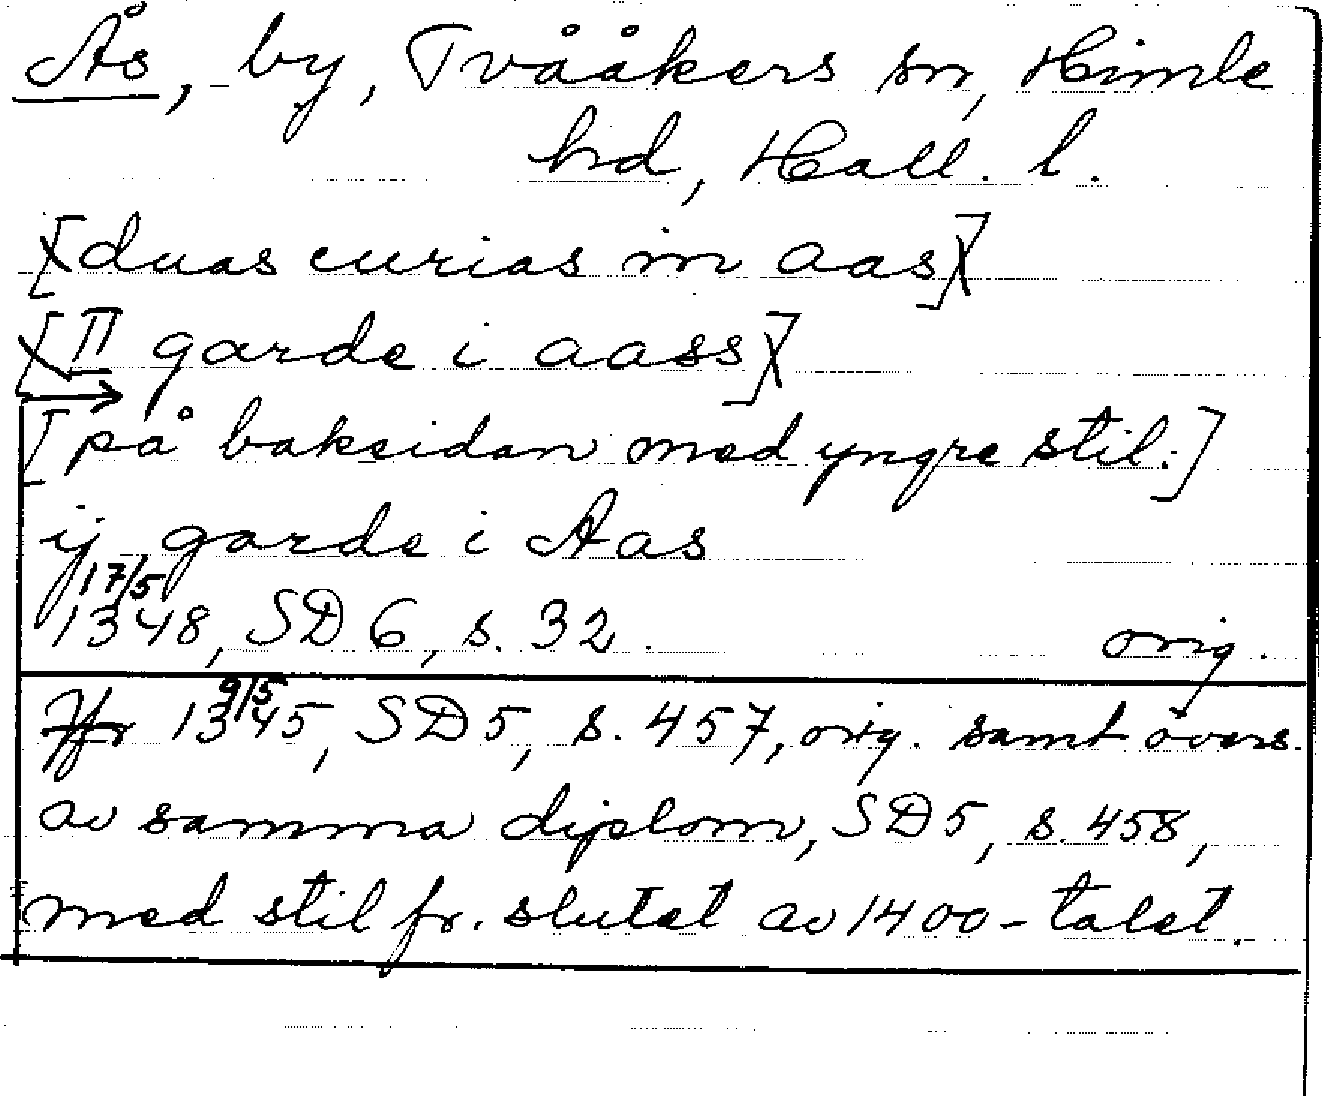 Ås, by, Tvååkers sn, Himle
hd, Hall. l.
[duas curias in aas]
[II garde i aass]
[på baksidan med yngre stil:]
ij garde i Aas
17/5
1348, SD 6, s. 32. orig.
9/5
Jfr 1345, SD 5, s. 457, orig. samt övers.
av samma diplom, SD 5, s. 458,
med stil fr. slutet av 1400-talet.